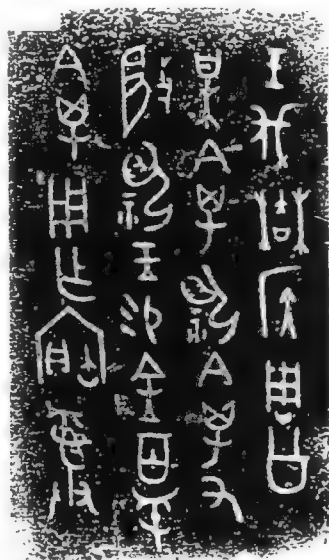 王伐侯周公
某禽祝禽又
敐祝王易金百寽
禽用乍寶彝